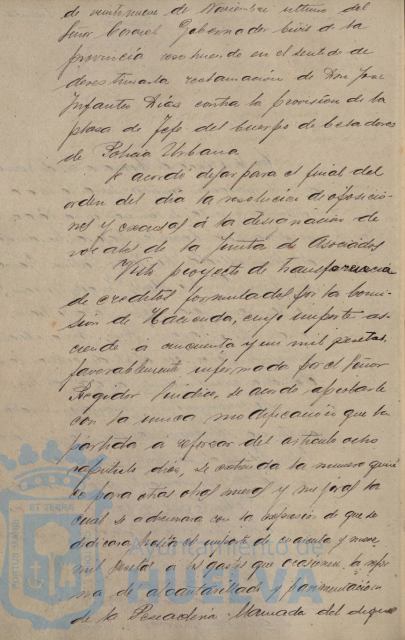 de veintinueve de Noviembre ultimo del
Señor Coronel Gobernador Civil de la
provincia resolviendo en el sentido de
desestimar la reclamación de Don Jose
Infantes Dias contra la provision de la
plaza de Jefe del Cuerpo de Celadores
de Policia Urbana
Se acordó dejar para el final del
orden del dia la resolucion de oposicio-
nes y excusas á la designación de
vocales de la Junta de Asociados
Visto proyecto de transferencia
de creditos formulado por la Comi-
sion de Hacienda, cuyo importe as-
ciende a cincuenta y un mil pesetas,
favorablemente informado por el Señor
Regidor Sindico, se acordó aprobarle
con la unica modificación que la
partida a reforzar del articulo ocho
capitulo dies, se entienda la numero
para otras obras nuevas y mejoras la
cual se adicionara con la expresion de que se
dedicara hasta el importe de cuarenta y nueve
mil pesetas a los gastos que ocasione la refor-
ma de alcantarillado y pavimentacion
de la llamada del
Ayuntamiento de
HUELVA